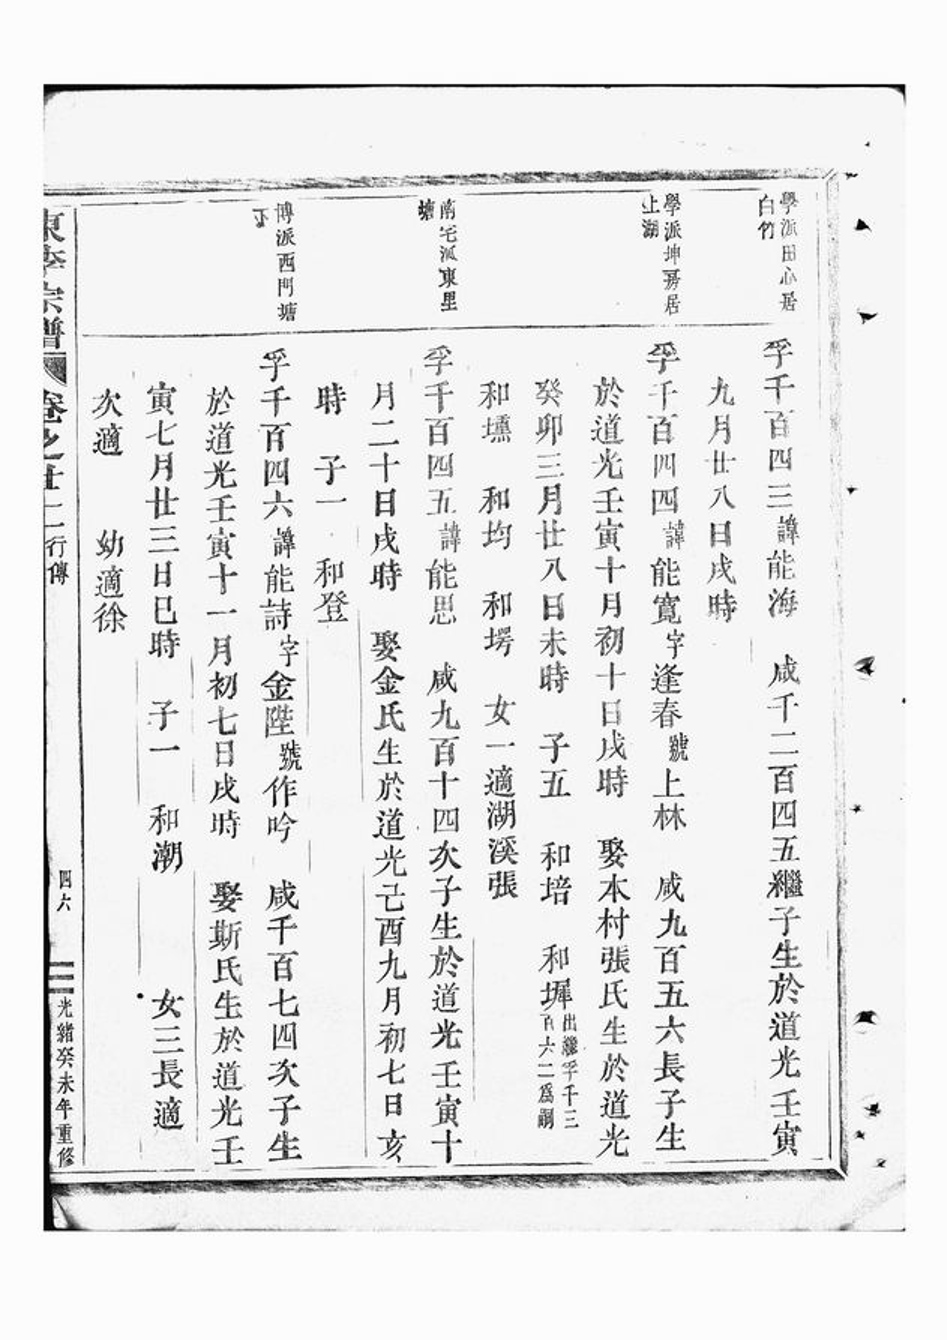 學派田心居
白竹
學派坤房居
上湖
南宅派東里
塘
博派西門塘
下
孚千百四三諱能海　咸千二百四五繼子生於道光壬寅
九月廿八日戌時
孚千百四四諱能寬字逢春號上林　咸九百五六長子生
於道光壬寅十月初十日戌時　娶本村張氏生於道光
癸卯三月廿八日未時　子五　和培　和墀出繼孚千三百六二爲嗣
和壎　和均　和塄　女一適湖溪張
孚千百四五諱能思　咸九百十四次子生於道光壬寅十
月二十日戌時　娶金氏生於道光己酉九月初七日亥
時　子一　和登
孚千百四六諱能詩字金陞號作吟　咸千百七四次子生
於道光壬寅十一月初七日戌時　娶斯氏生於道光壬
寅七月廿三日巳時　子一　和潮　女三長適
次適　幼適徐
東李宗譜 卷之廿二行傳 四六 光緒癸未年重修